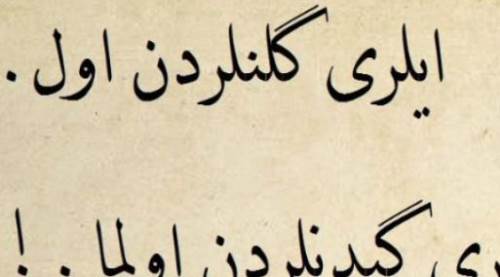 ایلری گلنلردن اول .
گیدنلردن اولما . !